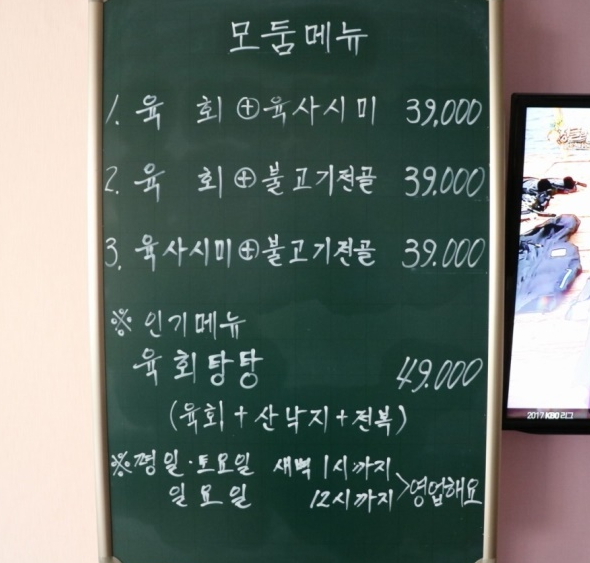 모둠메뉴
1. 육 회 ⊕ 육사시미 39,000
2. 육 회 ⊕ 불고기전골 39.000
3. 육사시미 ⊕ 불고기전골 39.000
※ 인기메뉴
육회탕탕 49.000
(육회 + 산낙지 + 전복)
※ 평일·토요일 새벽 1시까지
일요일 12시까지 > 영업해요
2017 KBO 리그